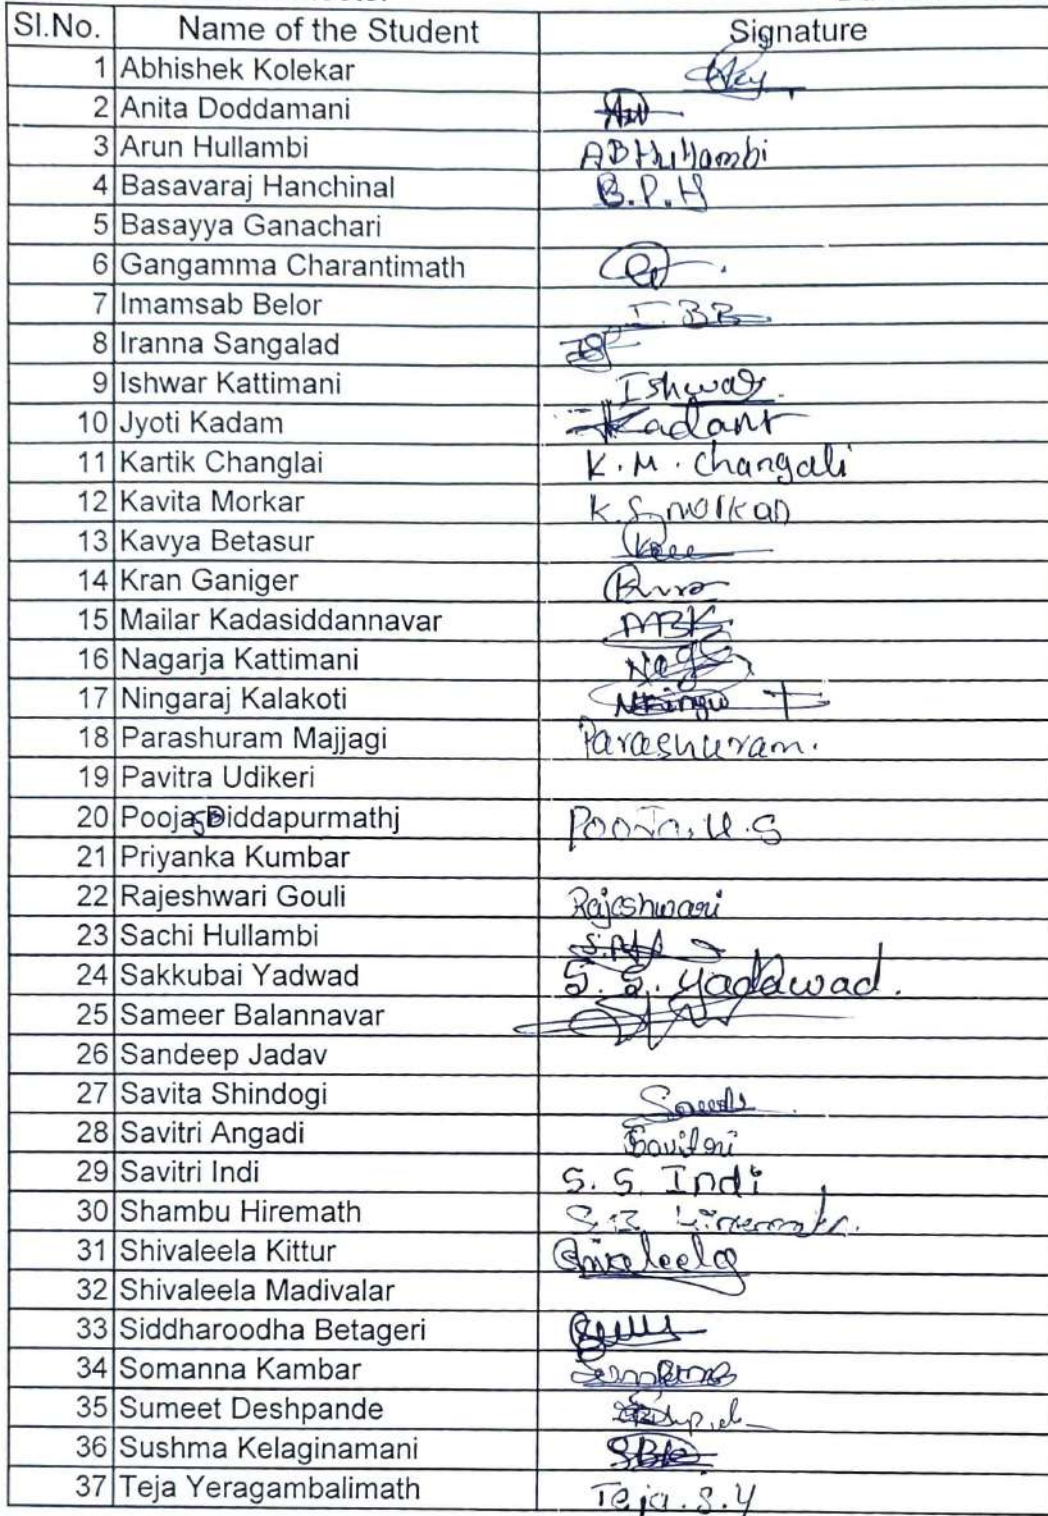 Sl.No. Name of the Student Signature
1 Abhishek Kolekar
2 Anita Doddamani
3 Arun Hullambi ABHullambi
4 Basavaraj Hanchinal B.P.H
5 Basayya Ganachari
6 Gangamma Charantimath
7 Imamsab Belor I.BB
8 Iranna Sangalad
9 Ishwar Kattimani Ishwar
10 Jyoti Kadam Kadam
11 Kartik Changlai K.M.Changali
12 Kavita Morkar K.S.morkar
13 Kavya Betasur
14 Kran Ganiger
15 Mailar Kadasiddannavar MBK
16 Nagarja Kattimani
17 Ningaraj Kalakoti
18 Parashuram Majjagi Parashuram.
19 Pavitra Udikeri
20 Pooja Siddapurmathj Pooja.U.S
21 Priyanka Kumbar
22 Rajeshwari Gouli Rajeshwari
23 Sachi Hullambi
24 Sakkubai Yadwad S.S.Yadawad.
25 Sameer Balannavar
26 Sandeep Jadav
27 Savita Shindogi
28 Savitri Angadi Savitri
29 Savitri Indi S.S.Indi
30 Shambu Hiremath
31 Shivaleela Kittur Shivaleela
32 Shivaleela Madivalar
33 Siddharoodha Betageri
34 Somanna Kambar
35 Sumeet Deshpande
36 Sushma Kelaginamani SBK
37 Teja Yeragambalimath Teja.S.Y